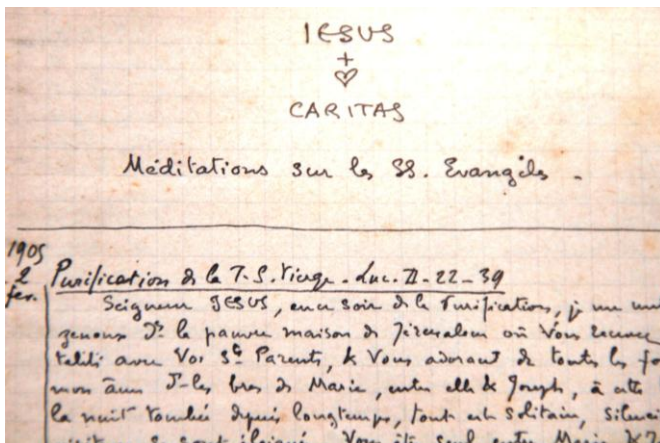 IESUS
+
♡
CARITAS
Méditations sur les SS. Evangiles.
1905
2
fév.
Purification de la T.S. Vierge. Luc. II-22-39
Seigneur JESUS, en ce soir de la Purification, je me
genoux ds la pauvre maison de Jérusalem où Vous
avec Vos Sts Parents, & Vous adorant de toutes les
mon âme ds les bras de Marie, entre elle & Joseph, à
la nuit tombée depuis longtemps, tout est solitaire,
Vous êtes seul entre Marie &